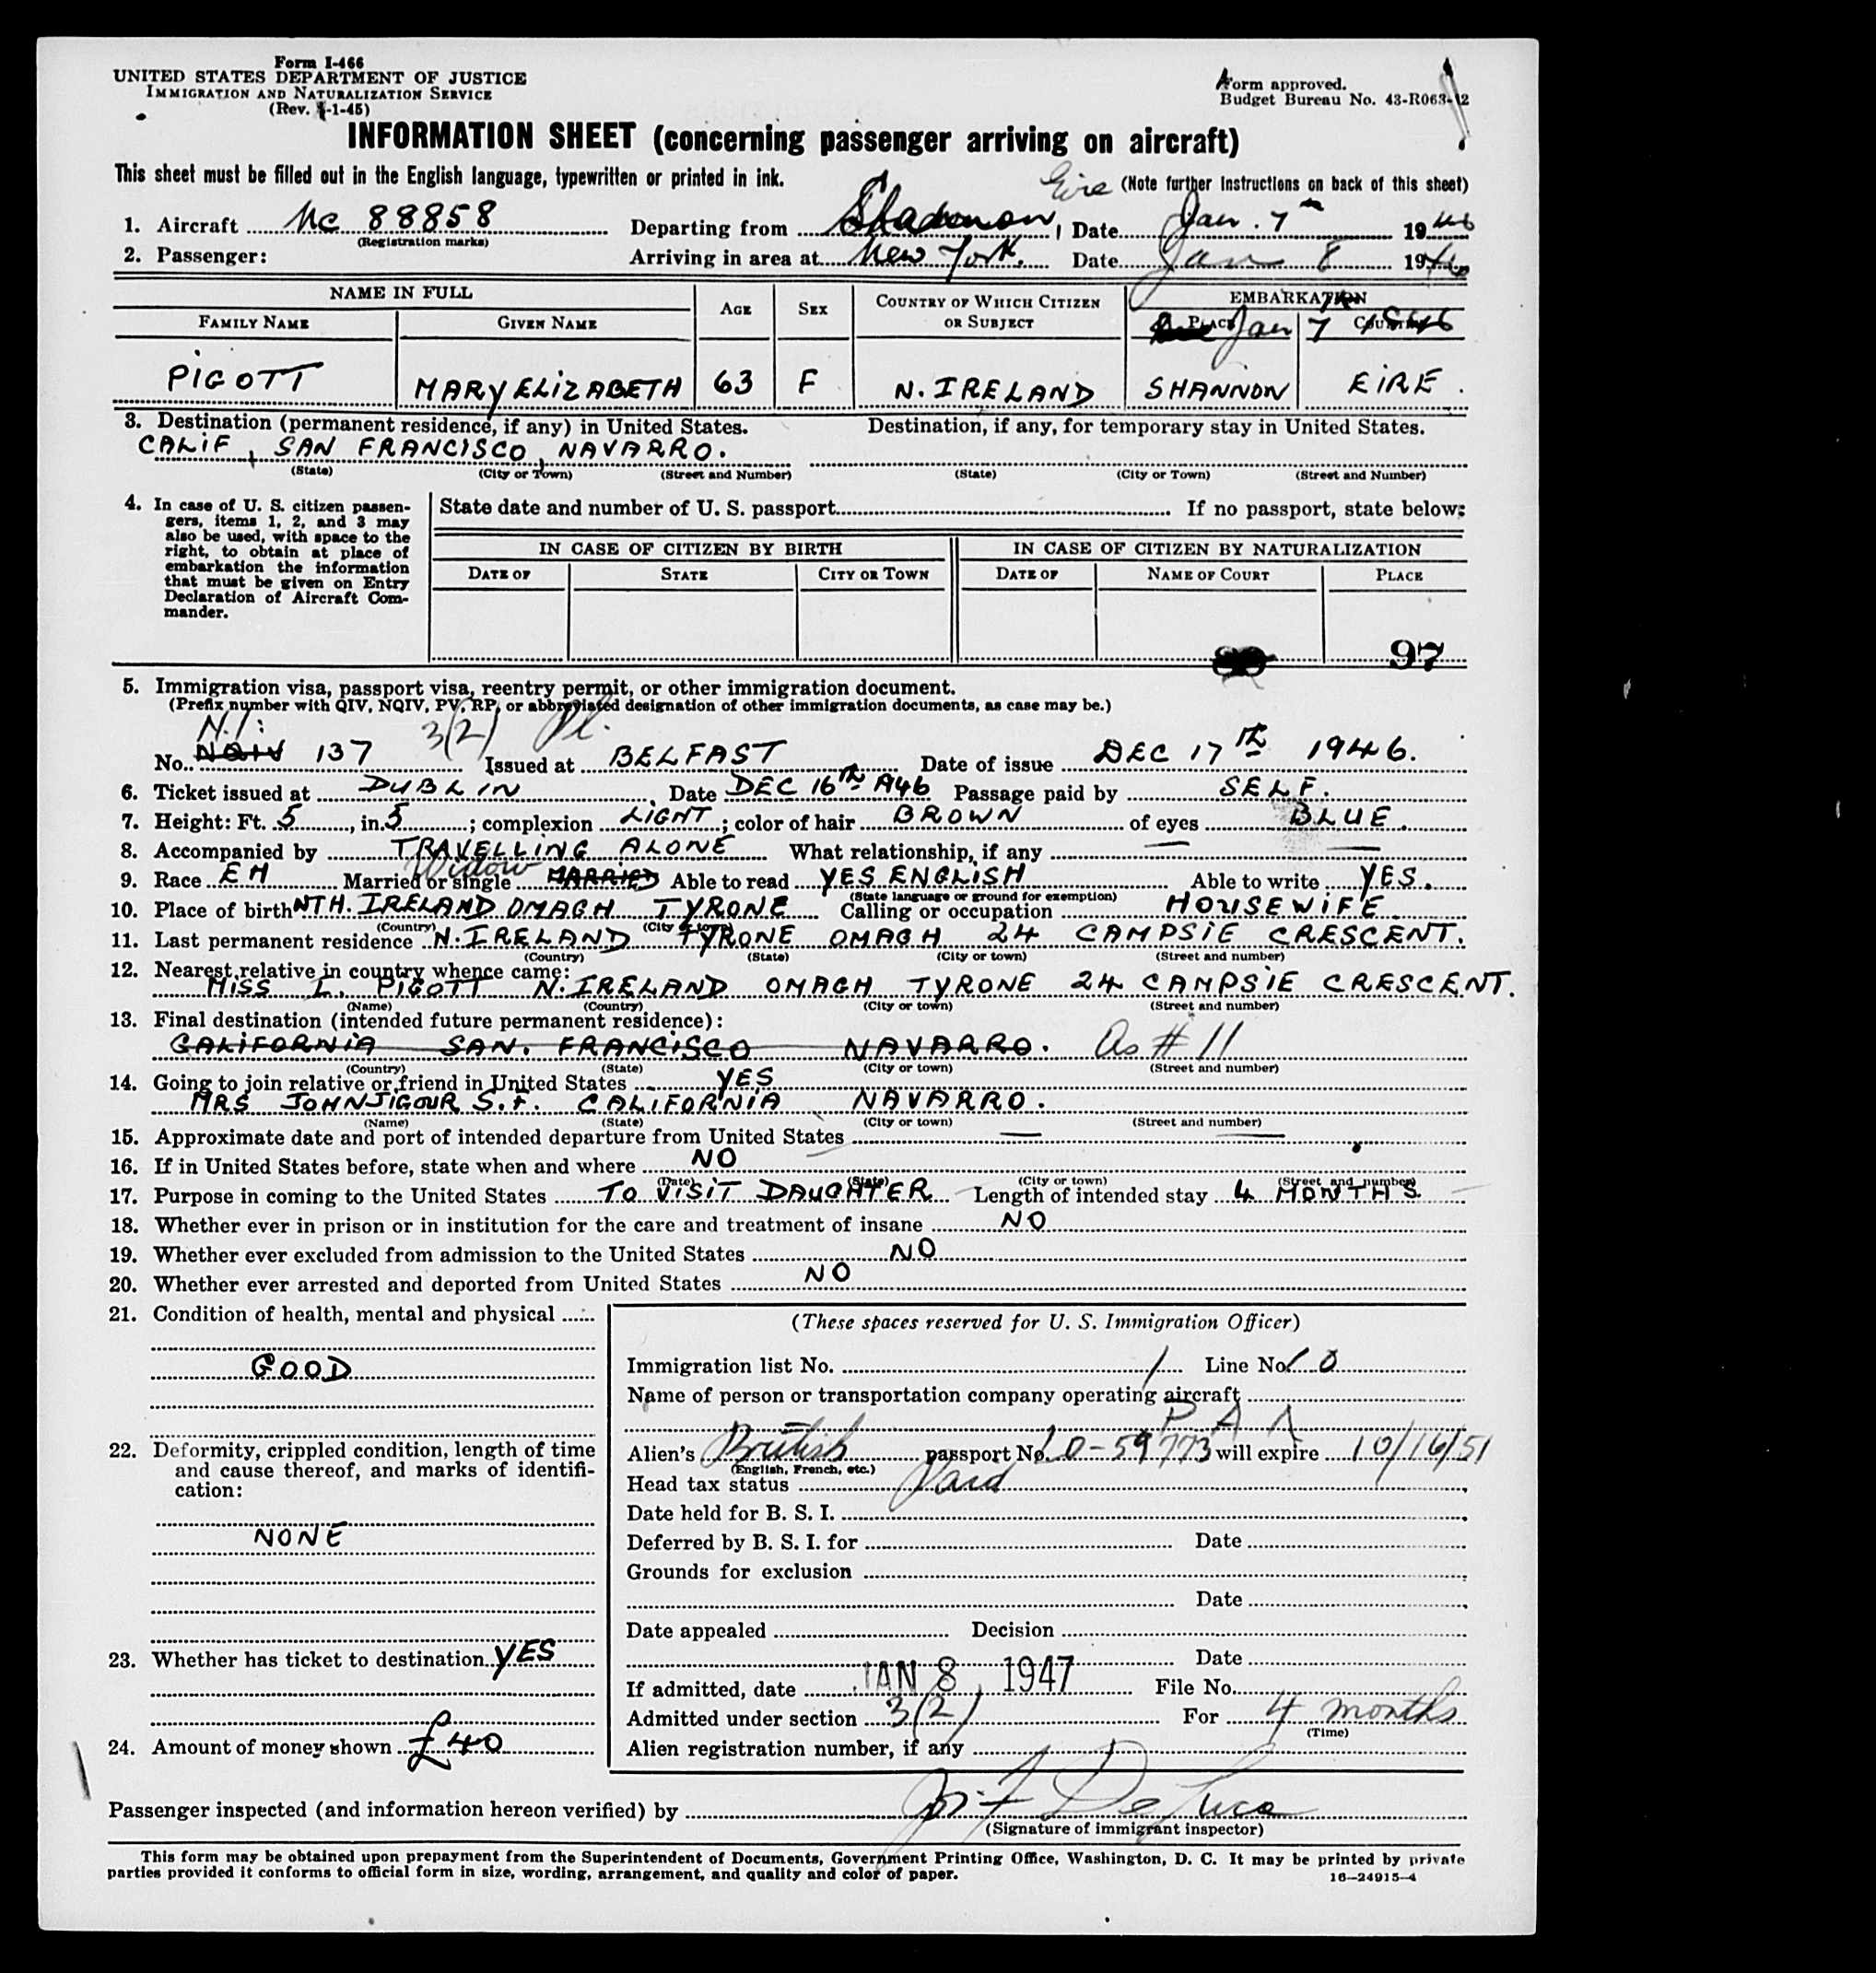 Form I-466
UNITED STATES DEPARTMENT OF JUSTICE
IMMIGRATION AND NATURALIZATION SERVICE
(Rev. -1-45)
Form approved.
Budget Bureau No. 43-R063-12
INFORMATION SHEET (concerning passenger arriving on aircraft)
This sheet must be filled out in the English language, typewritten or printed in ink.
Eire (Note further instructions on back of this sheet)
1. Aircraft NC 88858 Departing from Shannon, Date Jan. 7th 1946
(Registration marks)
2. Passenger: Arriving in area at New York. Date Jan 8 1946
NAME IN FULL AGE SEX COUNTRY OF WHICH CITIZEN OR SUBJECT EMBARKATION
FAMILY NAME GIVEN NAME PLACE COUNTRY
Jan 7 1946
PIGOTT MARY ELIZABETH 63 F N. IRELAND SHANNON EIRE.
3. Destination (permanent residence, if any) in United States. Destination, if any, for temporary stay in United States.
CALIF, SAN FRANCISCO, NAVARRO.
(State) (City or Town) (Street and Number) (State) (City or Town) (Street and Number)
4. In case of U. S. citizen passen-
gers, items 1, 2, and 3 may
also be used, with space to the
right, to obtain at place of
embarkation the information
that must be given on Entry
Declaration of Aircraft Com-
mander.
State date and number of U. S. passport If no passport, state below:
IN CASE OF CITIZEN BY BIRTH IN CASE OF CITIZEN BY NATURALIZATION
DATE OF STATE CITY OR TOWN DATE OF NAME OF COURT PLACE
97
5. Immigration visa, passport visa, reentry permit, or other immigration document.
(Prefix number with QIV, NQIV, PV, RP, or abbreviated designation of other immigration documents, as case may be.)
N.I: 3(2)
No. NQIV 137 Issued at BELFAST Date of issue DEC 17th 1946.
6. Ticket issued at DUBLIN Date DEC 16th 1946 Passage paid by SELF.
7. Height: Ft. 5, in. 5; complexion LIGHT; color of hair BROWN of eyes BLUE.
8. Accompanied by TRAVELLING ALONE What relationship, if any —
Widow
9. Race EH Married or single MARRIED Able to read YES ENGLISH Able to write YES.
(State language or ground for exemption)
10. Place of birth NTH. IRELAND OMAGH TYRONE Calling or occupation HOUSEWIFE
(Country) (City or town)
11. Last permanent residence N. IRELAND TYRONE OMAGH 24 CAMPSIE CRESCENT.
(Country) (State) (City or town) (Street and number)
12. Nearest relative in country whence came:
MISS L. PIGOTT N. IRELAND OMAGH TYRONE 24 CAMPSIE CRESCENT.
(Name) (Country) (City or town) (Street and number)
13. Final destination (intended future permanent residence):
CALIFORNIA SAN. FRANCISCO NAVARRO. As # 11
(Country) (State) (City or town) (Street and number)
14. Going to join relative or friend in United States YES
MRS JOHN JIGOUR S.F. CALIFORNIA NAVARRO.
(Name) (State) (City or town) (Street and number)
15. Approximate date and port of intended departure from United States —
16. If in United States before, state when and where NO
(Date) (State) (City or town) (Street and number)
17. Purpose in coming to the United States TO VISIT DAUGHTER Length of intended stay 4 MONTHS
18. Whether ever in prison or in institution for the care and treatment of insane NO
19. Whether ever excluded from admission to the United States NO
20. Whether ever arrested and deported from United States NO
21. Condition of health, mental and physical
GOOD
22. Deformity, crippled condition, length of time
and cause thereof, and marks of identifi-
cation:
NONE
23. Whether has ticket to destination YES
24. Amount of money shown £40
(These spaces reserved for U. S. Immigration Officer)
Immigration list No. 1 Line No. 10
Name of person or transportation company operating aircraft
P A A
Alien's British passport No. LO-59773 will expire 10/16/51
(English, French, etc.)
Head tax status Paid
Date held for B. S. I.
Deferred by B. S. I. for Date
Grounds for exclusion
Date
Date appealed Decision
Date
If admitted, date JAN 8, 1947 File No.
Admitted under section 3(2) For 4 months
(Time)
Alien registration number, if any
Passenger inspected (and information hereon verified) by De Luca
(Signature of immigrant inspector)
This form may be obtained upon prepayment from the Superintendent of Documents, Government Printing Office, Washington, D. C. It may be printed by private
parties provided it conforms to official form in size, wording, arrangement, and quality and color of paper.
16—24915-4